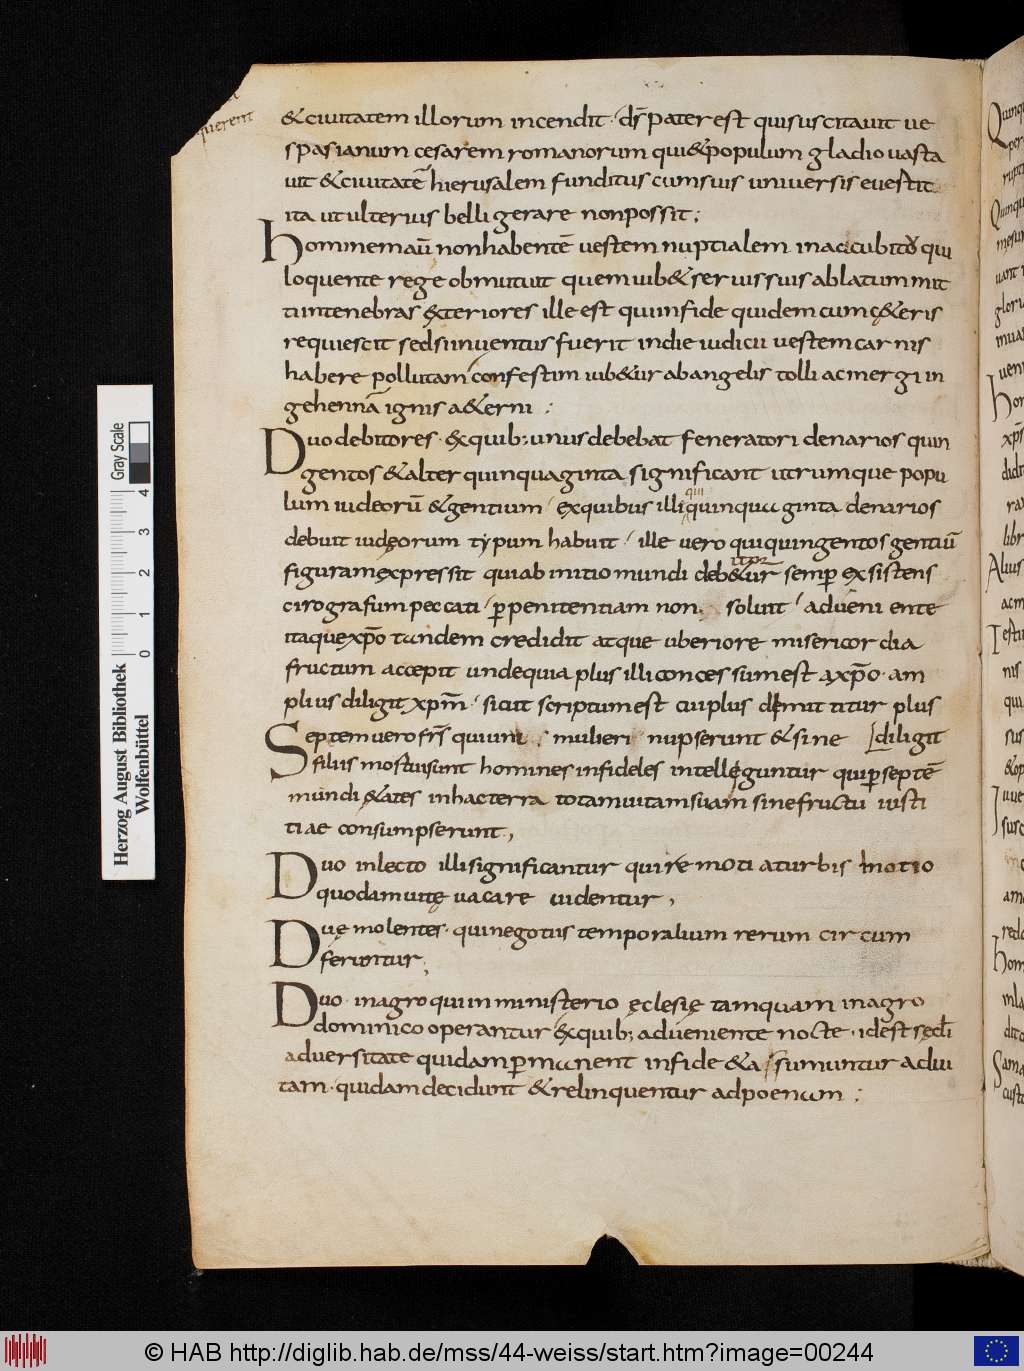 querent
&ciuitatem illorum incendit · dſ̄ pater est qui suscitauit ue
spasianum cesarem romanorum qui&populum gladio uasta
uit &ciuitatē hierusalem funditus cum suis uniuersis euestit
ita ut ulterius belligerare non possit ;
Hominem aū non habentē uestem nuptialem in accubitu qui
loquente rege obmutuit quem iub& seruis suis ablatum mit
ti in tenebras exteriores ille est qui in fide quidem cum c&eris
requiescit sed si inuentus fuerit in die iudicii uestem carnis
habere pollutam confestim iub&ur ab angelis tolli ac mergi in
gehennā ignis a&erni ;
Duo debitores · ex quib; unus debebat feneratori denarios quin
gentos &alter quinquaginta significant utrumque popu
lum iudeorū &gentium · ex quibus ille qui quinquaginta denarios
debuit iudęorum typum habuit · ille uero qui quingentos gentiū
figuram expressit qui ab initio mundi deb&ur semp̄ exsistens
cirografum peccati · p̄ penitentiam non soluit · adueniente
itaque xp̄o tandem credidit atque uberiore misericordia
fructum accepit unde quia plus illi concessum est a xp̄o · am
plius diligit xp̄m̄ · sicut scriptum est cui plus demittitur plus
Septem uero fr̄s qui uni mulieri nupserunt &sine [diligit
filiis mortui sunt homines infideles intelleguntur qui p̄ septē
mundi &ates in hac terra totam uitam suam sine fructu iusti
tiae consumpserunt ,
Duo in lecto illi significantur qui remoti a turbis in otio
quodam uitę uacare uidentur ,
Duę molentes · qui negotiis temporalium rerum circum
feruntur ;
Duo · in agro qui in ministerio ęclesię tamquam in agro
dominico operantur ex quib; adueniente nocte · id est sęcl̄i
aduersitate quidam p̄manent in fide &assumuntur ad ui
tam · quidam decidunt &relinquentur ad poenam ;
Quinqu
per
rupti
Quinqu
mesur
uant
glori
mua
ueni
Hor
xp̄s
didi
rar
libr
Alius
ac m
Testi
nis
qui
sus
&p
Iuue
susc
am
redo
hom
in la
dit
Sama
custo
Herzog August Bibliothek
Wolfenbüttel
0 1 2 3 4
Gray Scale
© HAB http://diglib.hab.de/mss/44-weiss/start.htm?image=00244